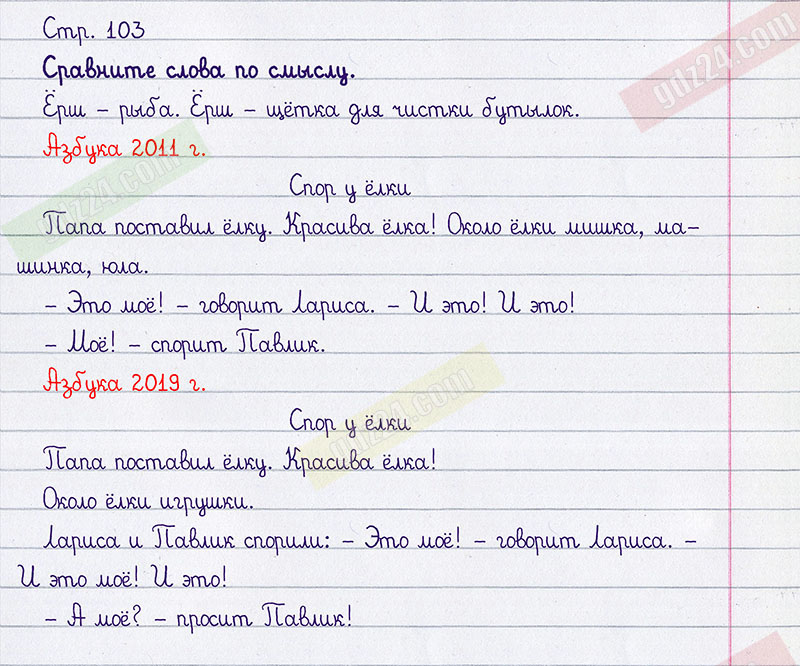 Стр. 103
Сравните слова по смыслу.
Ёрш – рыба. Ёрш – щётка для чистки бутылок.
Азбука 2011 г.
Спор у ёлки
Папа поставил ёлку. Красива ёлка! Около ёлки мишка, ма-
шинка, юла.
– Это моё! – говорит Лариса. – И это! И это!
– Моё! – спорит Павлик.
Азбука 2019 г.
Спор у ёлки
Папа поставил ёлку. Красива ёлка!
Около ёлки игрушки.
Лариса и Павлик спорили: – Это моё! – говорит Лариса. –
И это моё! И это!
– А моё? – просит Павлик!
gdz24.com
gdz24.com
gdz24.com